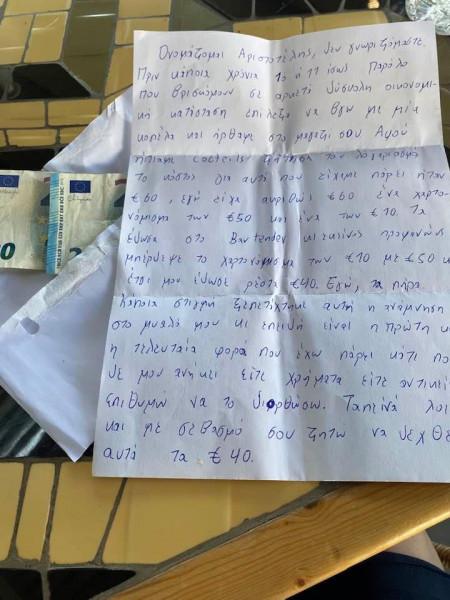 Ονομάζομαι Αριστοτέλης, δεν γνωριζόμαστε.
Πριν κάποια χρόνια 10 ή 11 ίσως Παρόλο
που βρισκόμουν σε αρκετά δύσκολη οικονομι-
κή κατάσταση επέλεξα να βγω με μία
κοπέλα και ήρθαμε στο μαγαζί σου Αφού
ήπιαμε cocteils ζήτησα τον λογαριασμό
Το κόστος για αυτά που είχαμε πάρει ήταν
€60, εγώ είχα ακριβώς €60 ένα χαρτο-
νόμισμα των €50 και ένα των €10. Τα
έδωσα στο Bartender κι εκείνος προφανώς
μπέρδεψε το χαρτονόμισμα των €10 με €50 κ
έτσι μου έδωσε ρέστα €40. Εγώ, τα πήρα
Κάποια στιγμή ξεπετάχτηκε αυτή η ανάμνηση
στο μυαλό μου κι επειδή είναι η πρώτη κ
η τελευταία φορά που έχω πάρει κάτι πο
δε μου ανήκει είτε χρήματα είτε αντικεί
επιθυμώ να το διορθώσω. Ταπεινά λοι
και με σεβασμό σου ζητώ να δεχθε
αυτά τα €40.